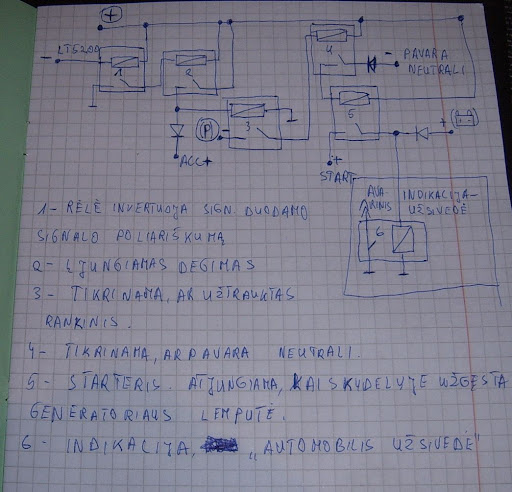 +
- LT5200
1
2
4
- PAVARA
NEUTRALI
5
P -
3
ACC+
+
START
+
- +
AVA-
RINIS
INDIKACIJA-
UŽSIVEDĖ
6
1 - RĖLĖ INVERTUOJA SIGN. DUODAMO
SIGNALO POLIARIŠKUMĄ
2 - ĮJUNGIAMAS DEGIMAS
3 - TIKRINAMA, AR UŽTRAUKTAS
RANKINIS.
4 - TIKRINAMA, AR PAVARA NEUTRALI.
5 - STARTERIS. ATJUNGIAMA, KAI SKYDELYJE UŽGĘSTA
GENERATORIAUS LEMPUTĖ.
6 - INDIKACIJA, „AUTOMOBILIS UŽSIVEDĖ"